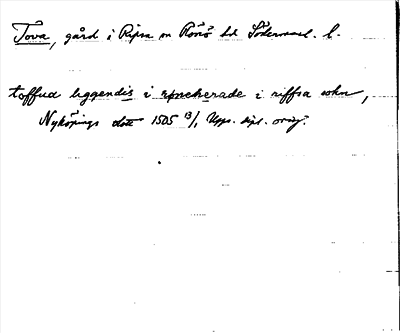 Tova, gård i Ripsa sn Rönö hd Södermanl. l.
toffua liggendis i i riffsa sokn,
Nyköpings 1505 13/1 Upps. dipl. orig.